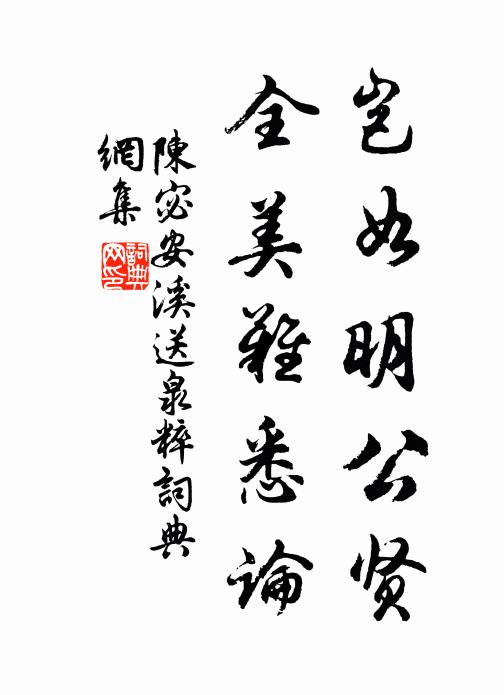 岂如明公贤
全美難悉論
陳宓安溪送泉粹詞典
網集
詞典
网印